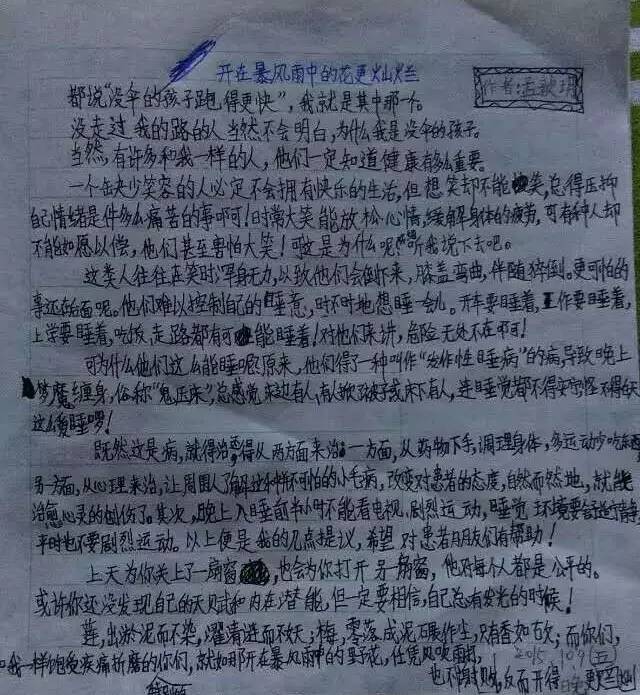 开在暴风雨中的花更灿烂
作者:孟
都说“没伞的孩子跑得更快”,我就是其中那一个。
没走过我的路的人当然不会明白,为什么我是没伞的孩子。
当然,有许多和我一样的人,他们一定知道健康有多么重要。
一个缺少笑容的人必定不会拥有快乐的生活,但想笑却不能笑,总得压抑
自己情绪是件多么痛苦的事啊!时常大笑能放松心情,缓解身体的疲劳,可有种人却
不能如愿以偿,他们甚至害怕大笑!可这是为什么呢?听我说下去吧。
这类人往往在笑时浑身无力,以致他们会倒下来,膝盖弯曲,伴随猝倒。更可怕的
事还在后面呢。他们难以控制自己的睡意,时不时地想睡一会儿。开车要睡着,工作要睡着,
上学要睡着,吃饭、走路都有可能睡着!对他们来讲,危险无处不在啊!
可为什么他们这么能睡呢?原来,他们得了一种叫作“发作性睡病”的病,导致晚上
梦魔缠身,俗称“鬼压床”,总感觉床边有人,有人掀了被子或床下有人,连睡觉都不得安宁,怪不得白天
这么爱睡啰!
既然这是病,就得治,得从两方面来治。一方面,从药物下手,调理身体,多运动少吃东西
另一方面,从心理来治,让周围人了解这种样不可怕的小毛病,改变对患者的态度,自然而然地,就能
治愈心灵的创伤了。其次,晚上入睡前半小时不能看电视、剧烈运动,睡觉环境要舒适宁静
平时也不要剧烈运动。以上便是我的几点提议,希望对患者朋友们有帮助!
上天为你关上了一扇窗,也会为你打开另一扇窗,他对每个人都是公平的。
或许你还没发现自己的天赋和内在潜能,但一定要相信,自己总有发光的时候!
莲,出淤泥而不染,濯清涟而不妖;梅,零落成泥碾作尘,只有香如故;而你们,
和我一样饱受疾病折磨的你们,就如那开在暴风雨中的野花,任凭风吹雨打,
也不谢败,反而开得更灿烂
2015 10.9(五)